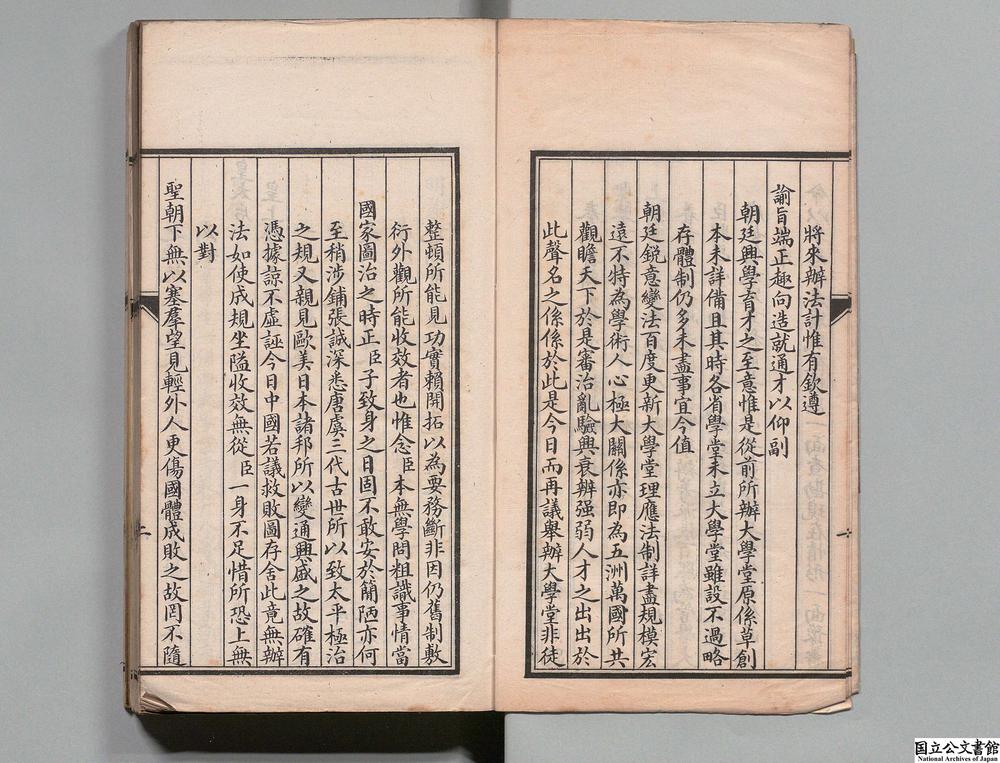 將來辦法計惟有欽遵
諭旨端正趨向造就通才以仰副
朝廷興學育才之至意惟是從前所辦大學堂原係草創
本未詳備且其時各省學堂未立大學堂雖設不過略
存體制仍多未盡事宜今值
朝廷銳意變法百度更新大學堂理應法制詳盡規模宏
遠不特為學術人心極大關係亦即為五洲萬國所共
觀瞻天下於是審治亂驗興衰辨强弱人才之出出於
此聲名之係係於此是今日而再議舉辦大學堂非徒
整頓所能見功實賴開拓以為要務斷非因仍舊制敷
衍外觀所能收效者也惟念臣本無學問粗識事情當
國家圖治之時正臣子致身之日固不敢安於簡陋亦何
至稍涉鋪張誠深悉唐虞三代古世所以致太平極治
之規又親見歐美日本諸邦所以變通興盛之故確有
憑據諒不虛誣今日中國若議救敗圖存舍此竟無辦
法如使成規坐隘收效無從臣一身不足惜所恐上無
以對
聖朝下無以塞羣望見輕外人更傷國體成敗之故罔不隨
二
国立公文書館
National Archives of Japan